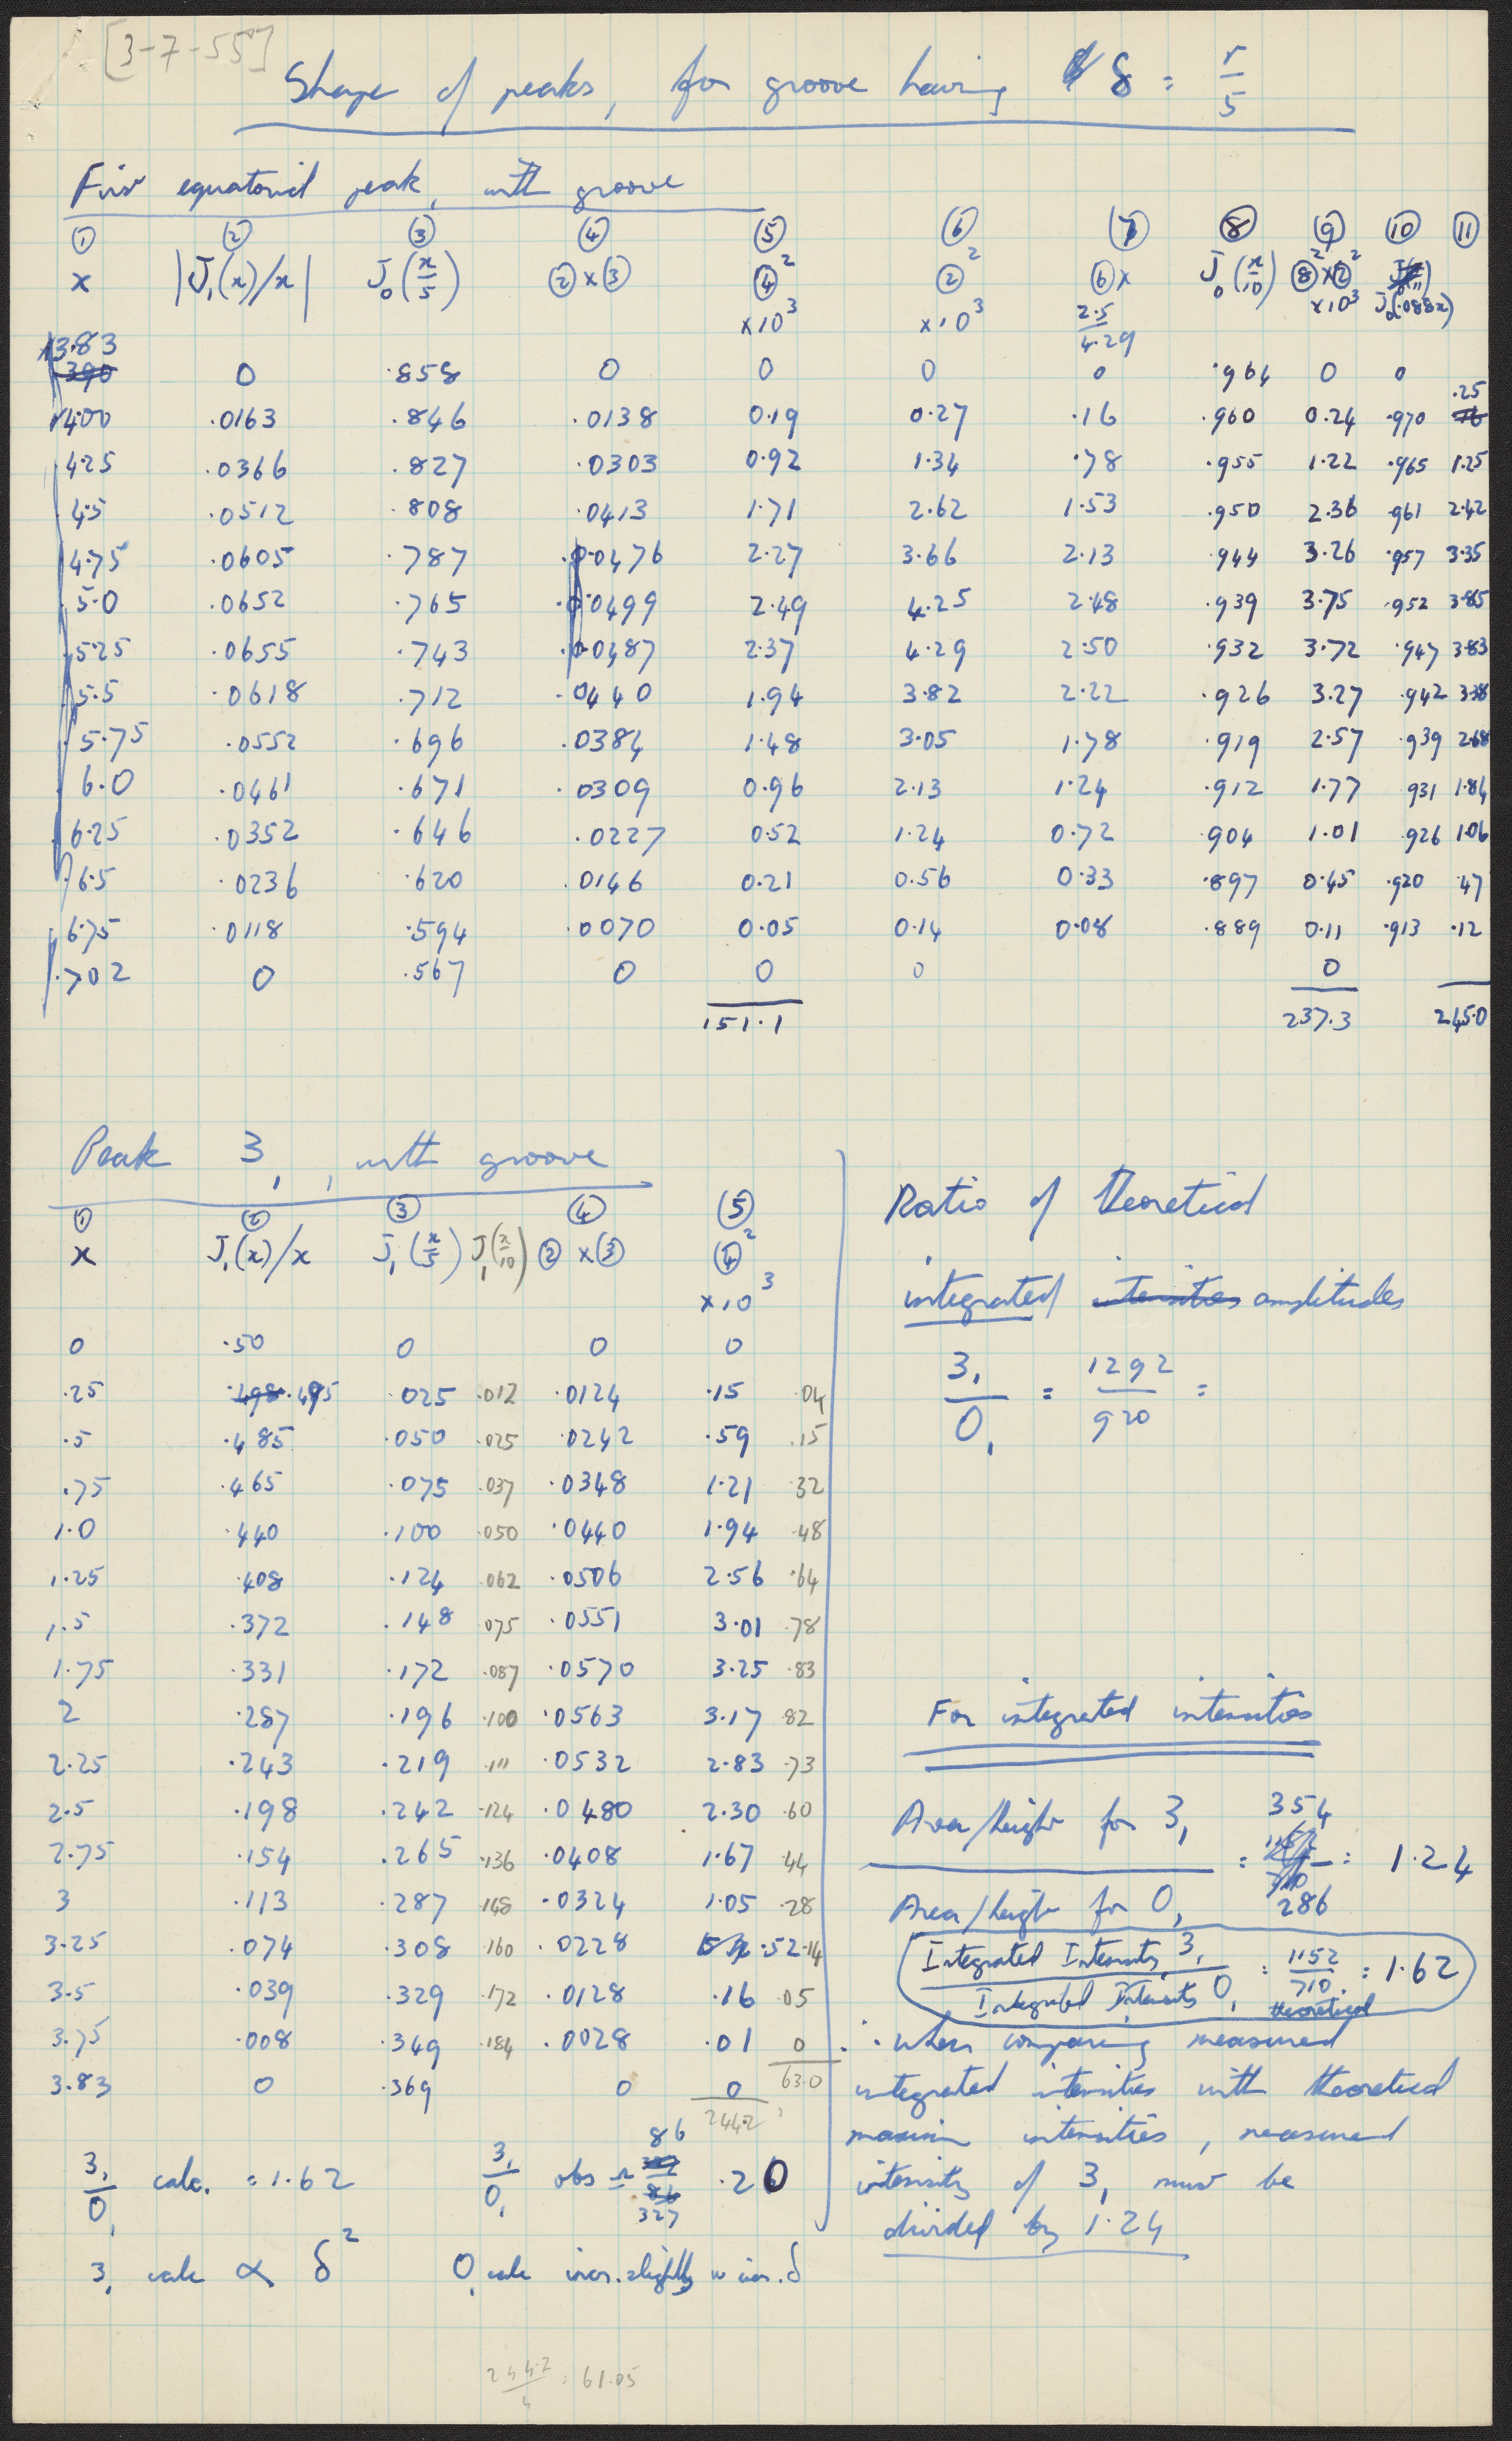 [3-7-55]
Shape of peaks, for groove having δ = r/5
First equatorial peak, with groove
① ② ③ ④ ⑤ ⑥ ⑦ ⑧ ⑨ ⑩ ⑪
x |J₁(x)/x| J₀(x/5) ②×③ ④² ②² ⑥× J₀(x/10) ⑧²×②² J₀(.088x)
×10³ ×10³ 2.5/4.29 ×10³
3.83
390 0 .858 0 0 0 0 .964 0 0
.25
4.00 .0163 .846 .0138 0.19 0.27 .16 .960 0.24 .970
4.25 .0366 .827 .0303 0.92 1.34 .78 .955 1.22 .965 1.25
4.5 .0512 .808 .0413 1.71 2.62 1.53 .950 2.36 .961 2.42
4.75 .0605 .787 .0476 2.27 3.66 2.13 .944 3.26 .957 3.35
5.0 .0652 .765 .0499 2.49 4.25 2.48 .939 3.75 .952 3.85
5.25 .0655 .743 .0487 2.37 4.29 2.50 .932 3.72 .947 3.83
5.5 .0618 .712 .0440 1.94 3.82 2.22 .926 3.27 .942 3.38
5.75 .0552 .696 .0384 1.48 3.05 1.78 .919 2.57 .939 2.68
6.0 .0461 .671 .0309 0.96 2.13 1.24 .912 1.77 .931 1.84
6.25 .0352 .646 .0227 0.52 1.24 0.72 .904 1.01 .926 1.06
6.5 .0236 .620 .0146 0.21 0.56 0.33 .897 0.45 .920 .47
6.75 .0118 .594 .0070 0.05 0.14 0.08 .889 0.11 .913 .12
7.02 0 .567 0 0 0 0
151.1 237.3 245.0
Peak 3₁, with groove
① ② ③ ④ ⑤
x J₁(x)/x J₁(x/5) J₁(x/10) ②×③ ④²
×10³
0 .50 0 0 0
.25 .498 .495 .025 .012 .0124 .15 .04
.5 .485 .050 .025 .0242 .59 .15
.75 .465 .075 .037 .0348 1.21 .32
1.0 .440 .100 .050 .0440 1.94 .48
1.25 .408 .124 .062 .0506 2.56 .64
1.5 .372 .148 .075 .0551 3.01 .78
1.75 .331 .172 .087 .0570 3.25 .83
2 .287 .196 .100 .0563 3.17 .82
2.25 .243 .219 .111 .0532 2.83 .73
2.5 .198 .242 .124 .0480 2.30 .60
2.75 .154 .265 .136 .0408 1.67 .44
3 .113 .287 .148 .0324 1.05 .28
3.25 .074 .308 .160 .0228 .52 .14
3.5 .039 .329 .172 .0128 .16 .05
3.75 .008 .349 .184 .0028 .01 0
3.83 0 .369 0 0 63.0
244.2
3₁/0₁ calc. = 1.62 3₁/0₁ obs = 86/327 .20
3₁ calc ∝ δ² 0₁ calc incr. slightly w incr. δ
244.2/4 = 61.05
Ratio of theoretical
integrated intensities amplitudes
3₁/0₁ = 1292/920 =
For integrated intensities
Area/height for 3₁ / Area/height for 0₁ = 354/286 = 1.24
Integrated Intensity 3₁ / Integrated Intensity 0₁ = 1152/710 = 1.62
theoretical
∴ when comparing measured
integrated intensities with theoretical
maximum intensities, measured
intensity of 3₁ must be
divided by 1.24